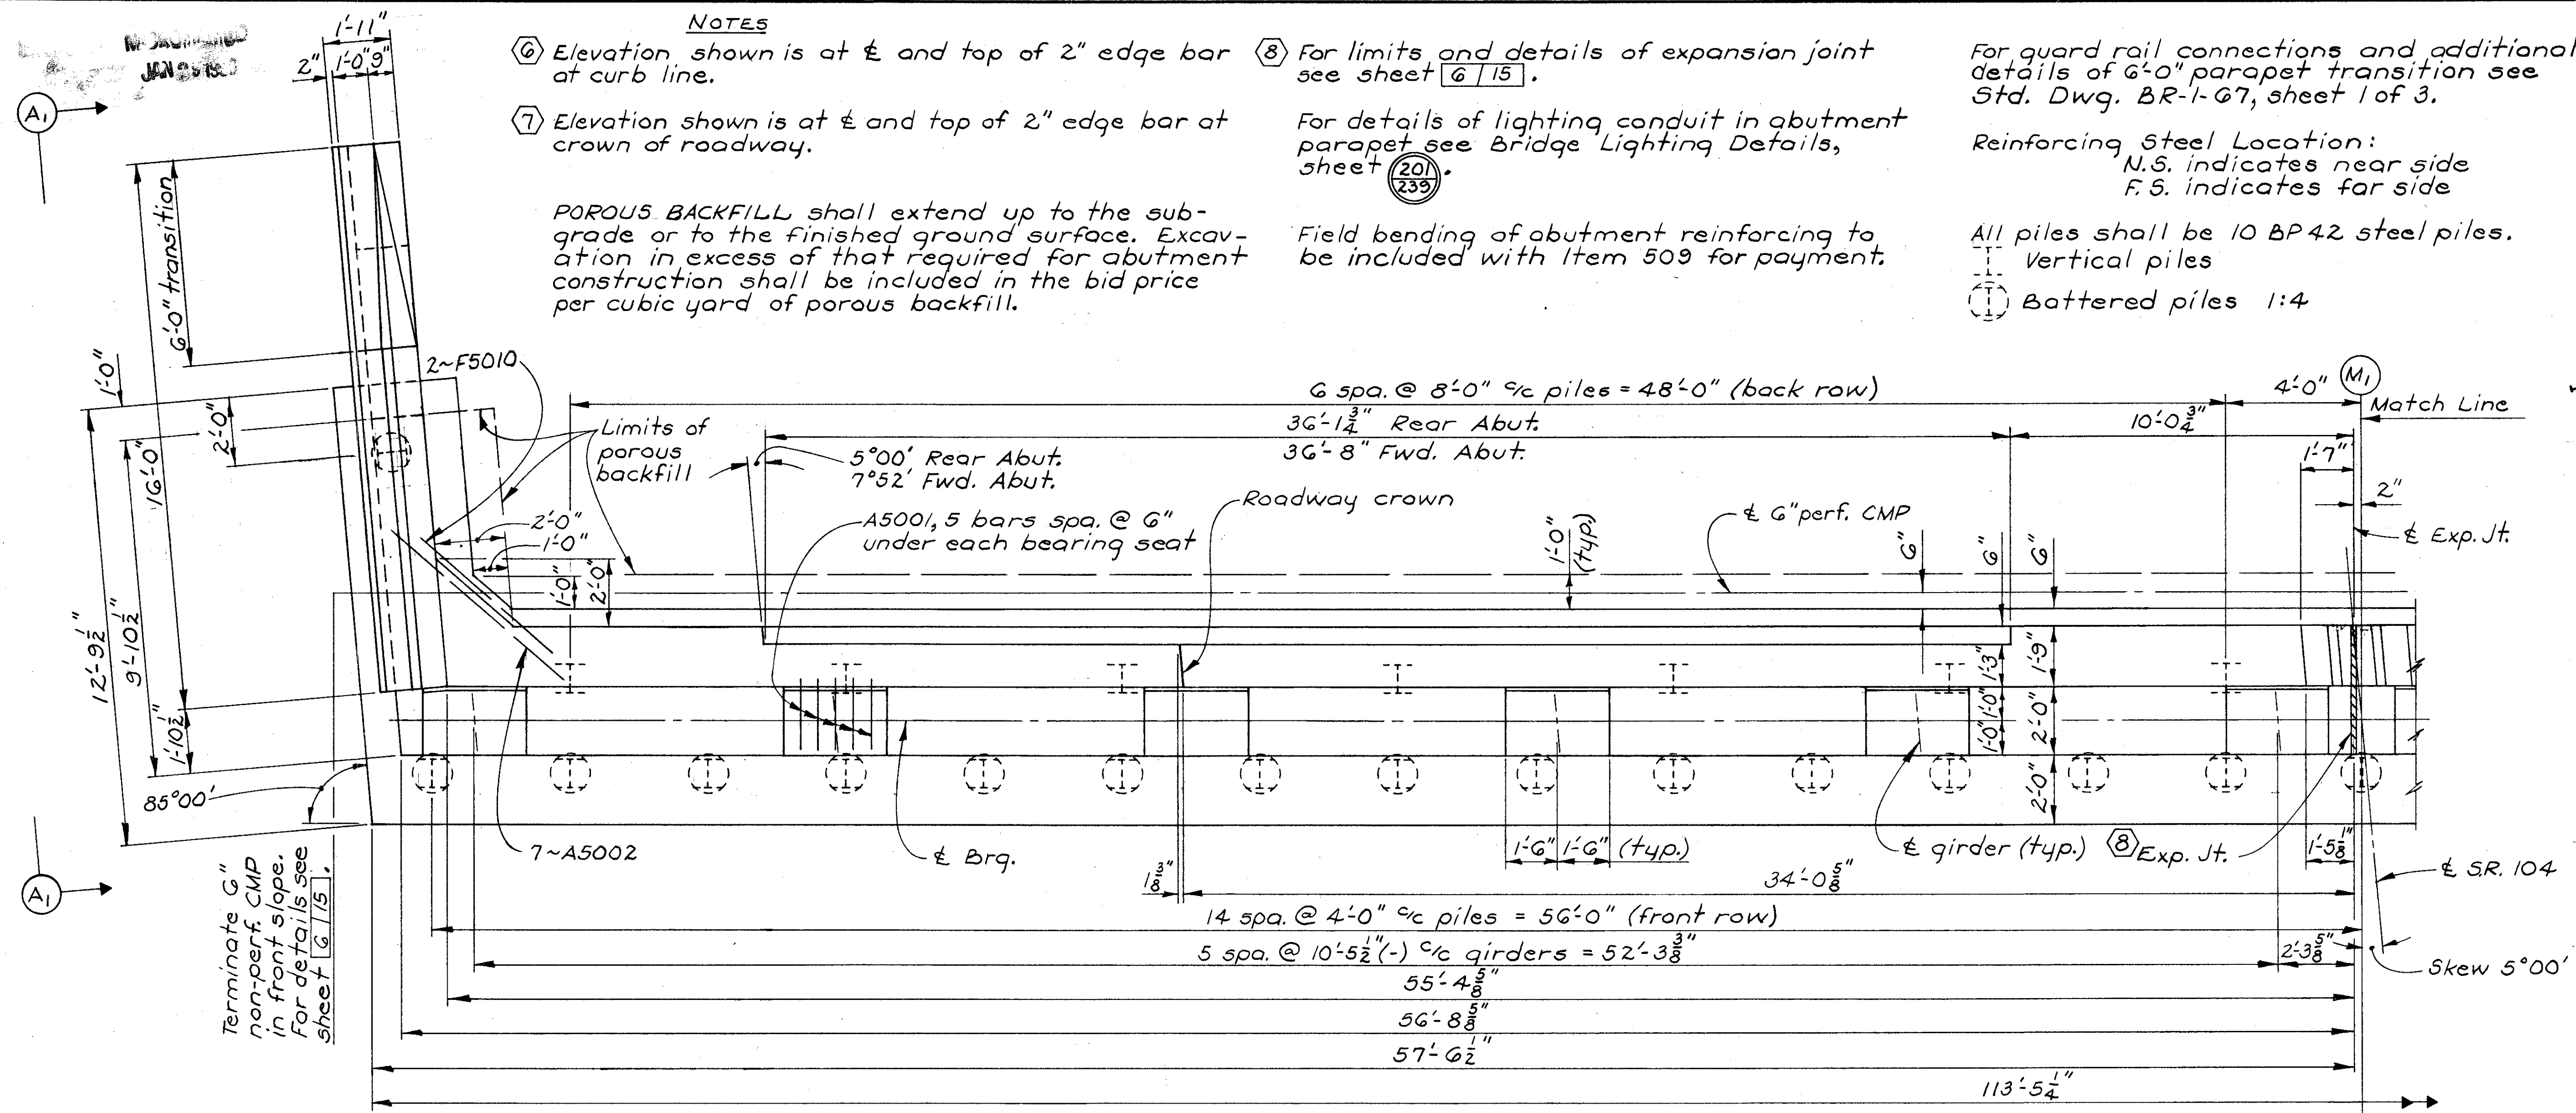 NOTES
⑥ Elevation shown is at ℄ and top of 2" edge bar
at curb line.
⑦ Elevation shown is at ℄ and top of 2" edge bar at
crown of roadway.
POROUS BACKFILL shall extend up to the sub-
grade or to the finished ground surface. Excav-
ation in excess of that required for abutment
construction shall be included in the bid price
per cubic yard of porous backfill.
⑧ For limits and details of expansion joint
see sheet 6/15.
For details of lighting conduit in abutment
parapet see Bridge Lighting Details,
sheet 201/239.
Field bending of abutment reinforcing to
be included with Item 509 for payment.
For guard rail connections and additional
details of 6'-0" parapet transition see
Std. Dwg. BR-1-67, sheet 1 of 3.
Reinforcing Steel Location:
N.S. indicates near side
F.S. indicates far side
All piles shall be 10 BP 42 steel piles.
Vertical piles
Battered piles 1:4
1'-11"
2" 1'-0" 9"
A1
6'-0" transition
1'-0"
2'-0"
16'-0"
9'-10 1/2"
12'-9 1/2"
1'-10 1/2"
85°00'
A1
2~F5010
Limits of
porous
backfill
2'-0"
1'-0"
1'-0"
2'-0"
7~A5002
6 spa. @ 8'-0" c/c piles = 48'-0" (back row)
4'-0"
M1
Match Line
36'-1 3/4" Rear Abut.
36'-8" Fwd. Abut.
10'-0 3/4"
1'-7"
2"
5°00' Rear Abut.
7°52' Fwd. Abut.
A5001, 5 bars spa. @ 6"
under each bearing seat
Roadway crown
1'-0"
(typ.)
℄ 6" perf. CMP
6"
6"
6"
℄ Exp. Jt.
1'-3"
1'-9"
1'-0"
1'-0"
2'-0"
2'-0"
℄ Brg.
1'-6" 1'-6" (typ.)
℄ girder (typ.)
⑧ Exp. Jt.
1'-5 1/8"
℄ S.R. 104
1 3/8"
34'-0 5/8"
14 spa. @ 4'-0" c/c piles = 56'-0" (front row)
5 spa. @ 10'-5 1/2" (-) c/c girders = 52'-3 3/8"
2'-3 5/8"
Skew 5°00'
55'-4 5/8"
56'-8 5/8"
57'-6 1/2"
113'-5 1/4"
Terminate 6"
non-perf. CMP
in front slope.
For details see
sheet 6/15.